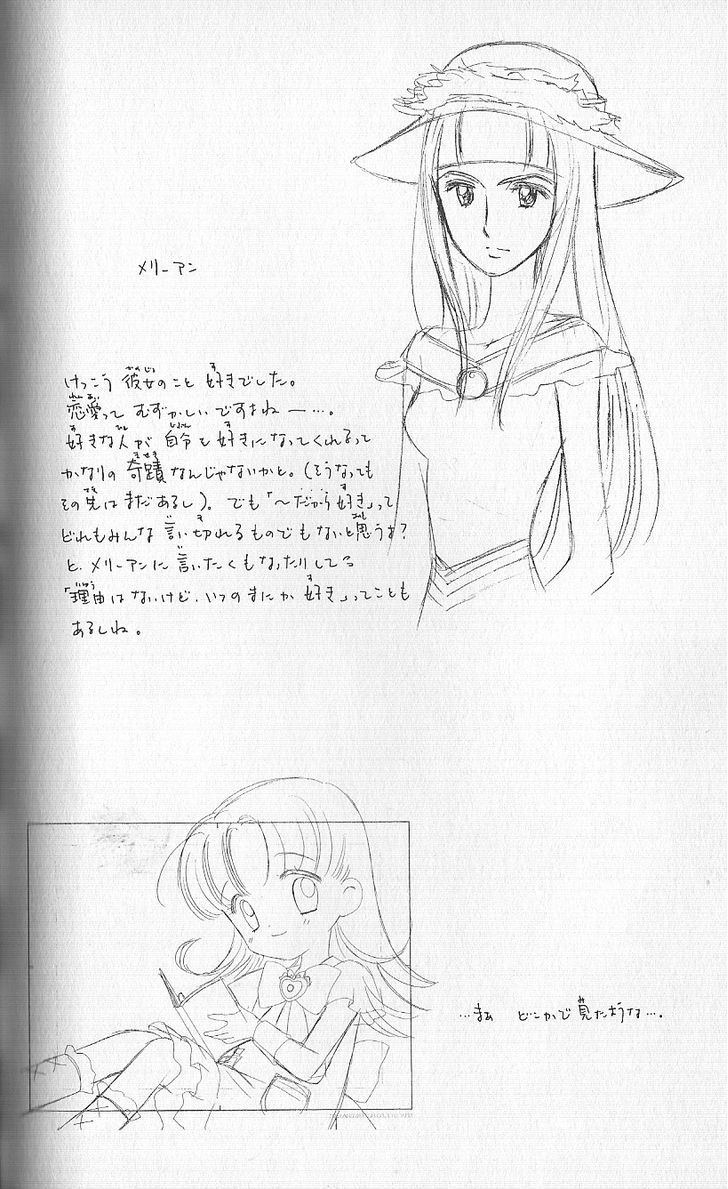 メリーアン
けっこう 彼女のこと 好きでした。
恋愛って むずかしいですよねー…。
好きな人が 自分を好きになってくれるって
かなりの 奇蹟 なんじゃないかと。(そうなっても
その先はまだあるし)。でも「〜だから好き」って
どれもみんな 言い切れるものでもないと思うよ?
と、メリーアンに 言いたくもなったりして。
「理由はないけど、いつのまにか 好き」ってことも
あるしね。
…まぁ どこかで 見たような…。